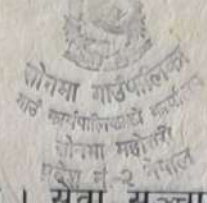 सोनमा गाउँपालिका
गाउँ कार्यपालिकाको कार्यालय
सोनमा महोत्तरी
प्रदेश नं २ नेपाल
। सेवा